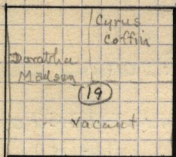 Cyrus
Coffin
Dorothea
Madsen
19
vacant